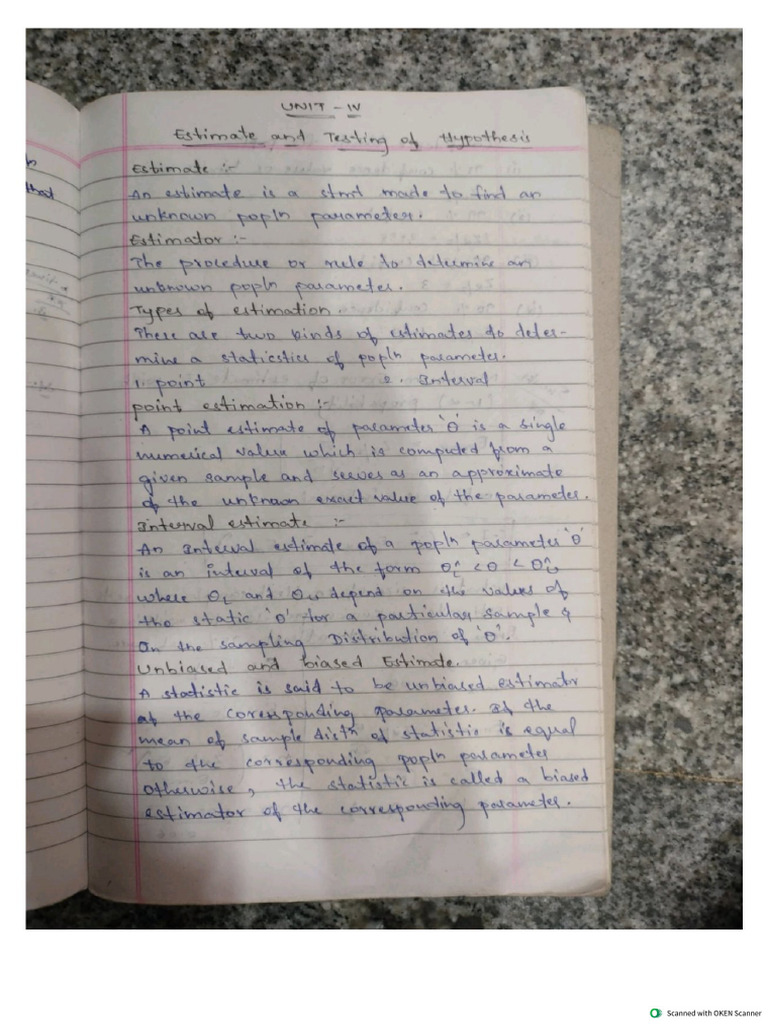 UNIT - IV
Estimate and Testing of Hypothesis
Estimate :-
An estimate is a stmt made to find an
unknown popln parameter.
Estimator :-
The procedure or rule to determine an
unknown popln parameter.
Types of estimation
There are two kinds of estimates to deter-
mine a staticstics of popln parameter.
1. point 2. Interval
point estimation :-
A point estimate of parameter 'θ' is a single
numerical value which is computed from a
given sample and serves as an approximate
of the unknown exact value of the parameter.
Interval estimate :-
An Interval estimate of a popln parameter 'θ'
is an interval of the form θ̂L < θ < θ̂U
where θL and θU depend on the values of
the static 'θ' for a particular sample &
On the sampling Distribution of 'θ'.
Unbiased and biased Estimate.
A statistic is said to be unbiased estimatr
of the coresponding parameter. If the
mean of sample distn of statistic is equal
to the corresponding popln parameter
otherwise, the statistic is called a biased
estimator of the corresponding parameter.
that
Scanned with OKEN Scanner